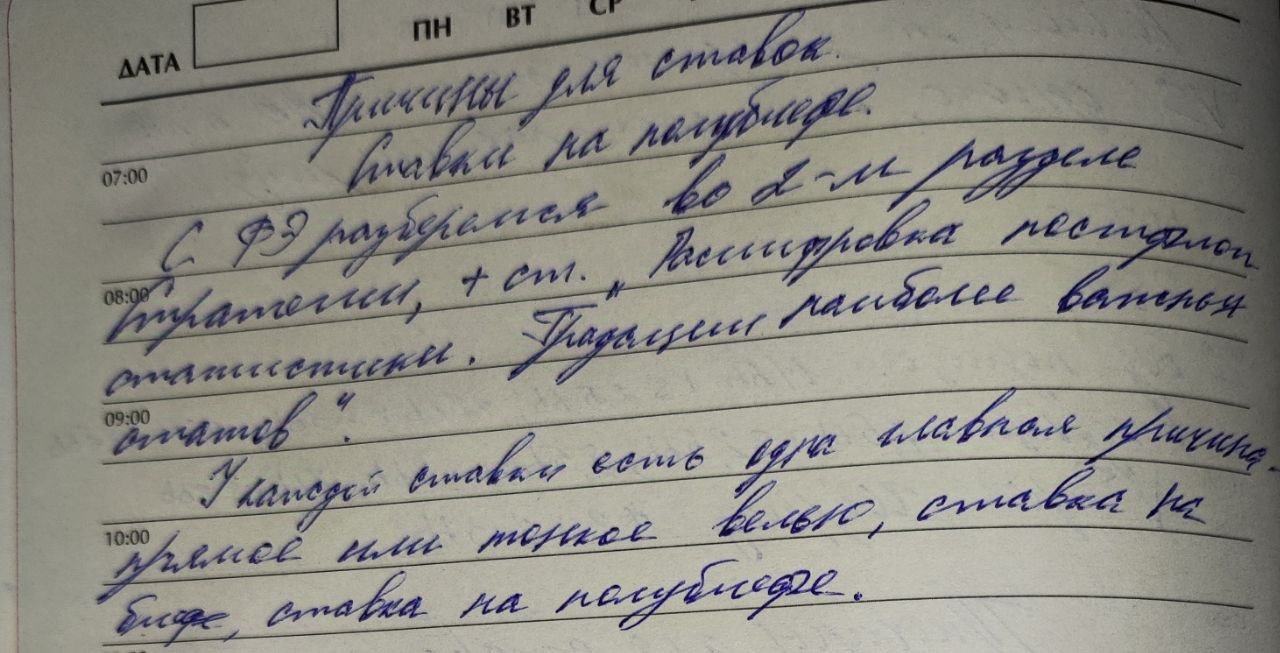 ДАТА ПН ВТ СР
Причины для ставок.
Ставки на полублефе.
07:00
С ФЭ разберемся во 2-м разделе
08:00
стратегии, + ст. „Расшифровка постфлоп
статистики. Градации наиболее важных
09:00
статов".
У каждой ставки есть одна главная причина.
10:00
прямое или тонкое велью, ставка на
блефе, ставка на полублефе.